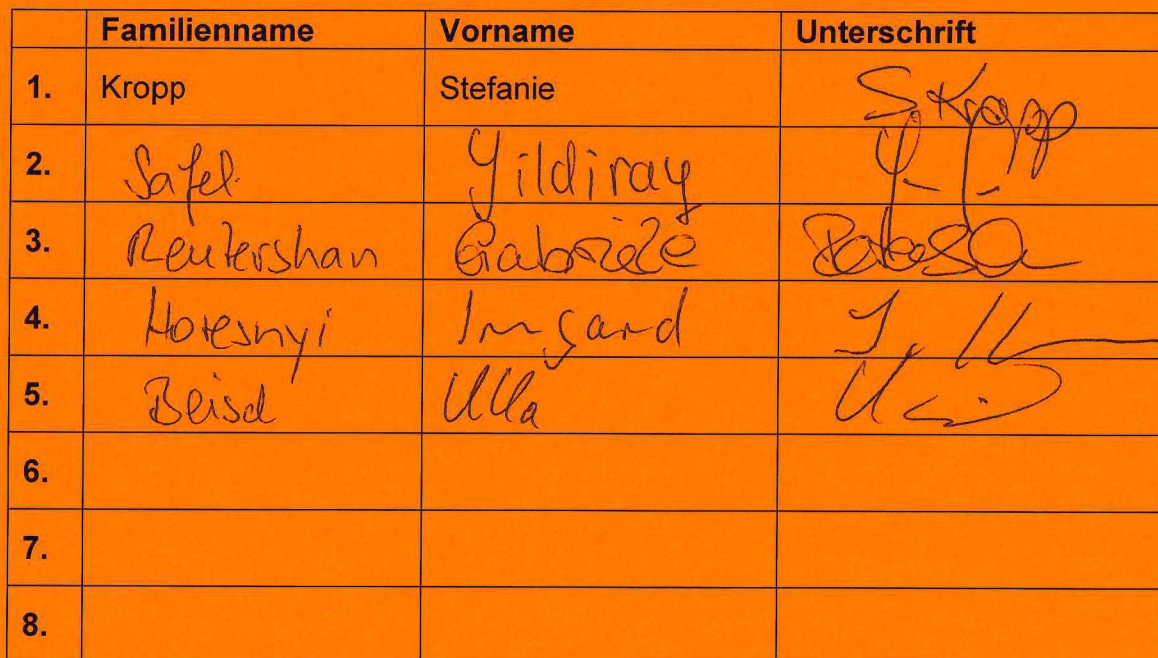 Familienname Vorname Unterschrift
1. Kropp Stefanie S. Kropp
2. Safel Yildiray
3. Reutershan Gabriele
4. Horesnyi Irmgard
5. Beisel Ulla
6.
7.
8.